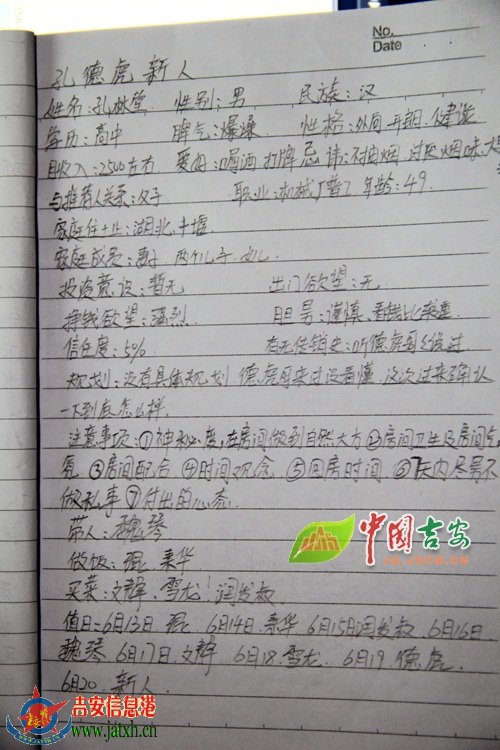 No.
Date
孔德虎新人
姓名:孔林堂 性别:男 民族:汉
学历:高中 脾气:爆燥 性格:外向 开朗 健谈
月收入:2500左右 爱好:喝酒 打牌 忌讳:不抽烟 讨厌烟味大
与推荐人关系:父子 职业:机械厂普工 年龄:49.
家庭住址:湖北十堰
家庭成员:妻子 两个儿子 女儿
投资意识:暂无 出门欲望:无
挣钱欲望:强烈 胆量:谨慎 看钱比较重
信任度:50% 有无传销史:听德虎哥
规划:没有具体规划 德虎哥来过没看懂 这次过来确认
一下到底怎么样
注意事项:①神秘度,在房间做到自然大方②房间卫生及房间气
氛 ③房间配合 ④时间观念 ⑤回房时间 ⑥7天内尽量不
做私事⑦付出的心态
带人:魏琴
做饭:秦华
买菜:文静 雪龙 润发叔
值日:6月13日 6月14日 秦华 6月15日润发叔 6月16日
魏琴 6月17日 文静 6月18 雪龙 6月19 德虎
6月20 新人
中国吉安
JA.JXCN.CN
吉安信息港
www.jatxh.cn